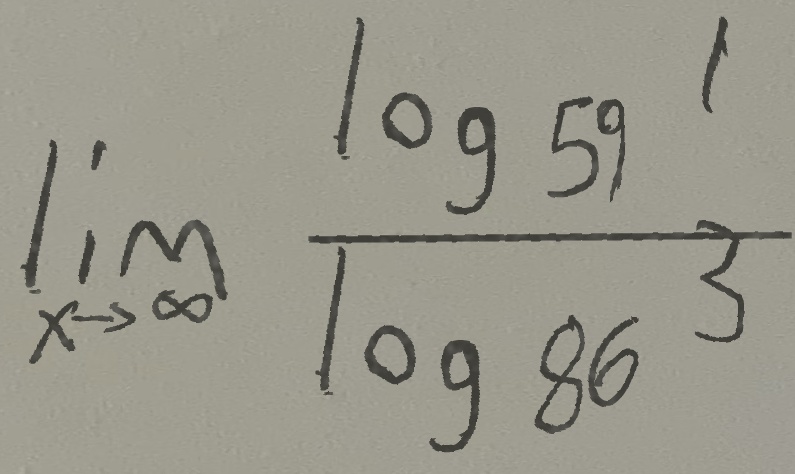 \lim_{x \to \infty} \frac{\log 59^1}{\log 86^3}